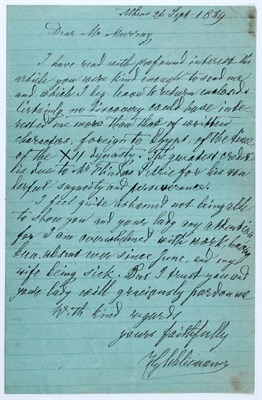 Athens 26 Sept. 1889
Dear Mr Murray
I have read with profound interest the
article you were kind enough to send me
and which I beg leave to return enclosed.
Certainly no discovery could have inte-
rested me more than that of written
characters, foreign to Egypt, of the time
of the XII dynasty. The greatest credit
is due to Mr Flinders Petrie for his won-
derful sagacity and perseverance.
I feel quite ashamed not being able
to show you and your lady any attention
for I am overwhelmed with work having
been absent ever since June, and my
wife being sick. But I trust you and
your lady will graciously pardon me
With kind regards
yours faithfully
Hy Schliemann